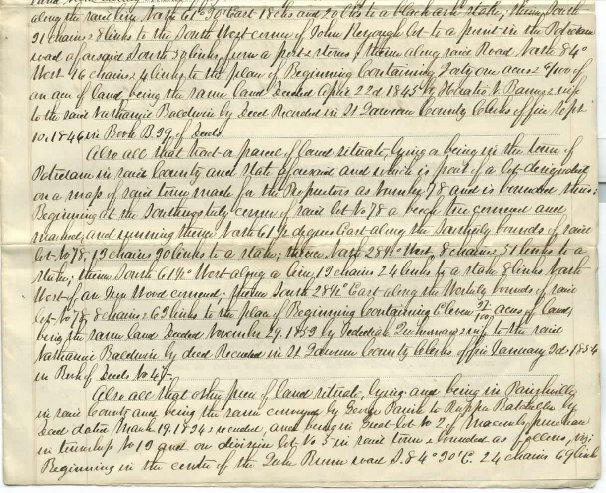 along the said line North 61° 30' East 18 chs and 20 lks to a black ash stake, thence South
21 chains 8 links to the South West corner of John Keyough lot to a point in the Potsdam
road aforesaid South 30 links from a post & stones; thence along said Road North 84°
West 46 chains 4 links to the place of Beginning Containing Forty one acres of
an acre of land, being the same land Deeded 22d 1845 by Horatio & wife
to the said Nathaniel Baldwin by Deed Recorded in St Lawrence County Clerks office Sept
10, 1846 in Book B. 39 of Deeds
Also all that tract or parcel of land situate, lying & being in the town of
Potsdam in said County and State aforesaid and which is part of a lot designated
on a map of said town made for the Proprietors as number 78 and is bounded thus;
Beginning at the corner of said lot No 78 a beech tree cornered and
marked, and running thence North 61½ degrees East along the Southerly bounds of said
lot No 78, 13 chains 30 links to a stake; thence North 28½° West, 8 chains 51 links to a
stake; thence South 61½° West along a line, 13 chains 24 links to a stake 8 links North
West of an Iron Wood cornered; thence South 28½° East along the Westerly bounds of said
lot No 78, 8 chains 63 links to the place of Beginning Containing Eleven acres of land,
being the same land Deeded November 29, 1853 by Jedediah & wife to the said
Nathaniel Baldwin by deed Recorded in St Lawrence County Clerks office January 3d 1854
in Book of Deeds No 47.
Also all that other piece of land situate, lying and being in
in said County and being the same conveyed by George to by
Deed dated March 19, 1834 & recorded, and being in Great lot No 2 of Macombs purchase
in township No 13 and on division lot No 5 in said town & bounded as follows, viz:
Beginning in the centre of the road S. 84° 30' E. 24 chains 69 links